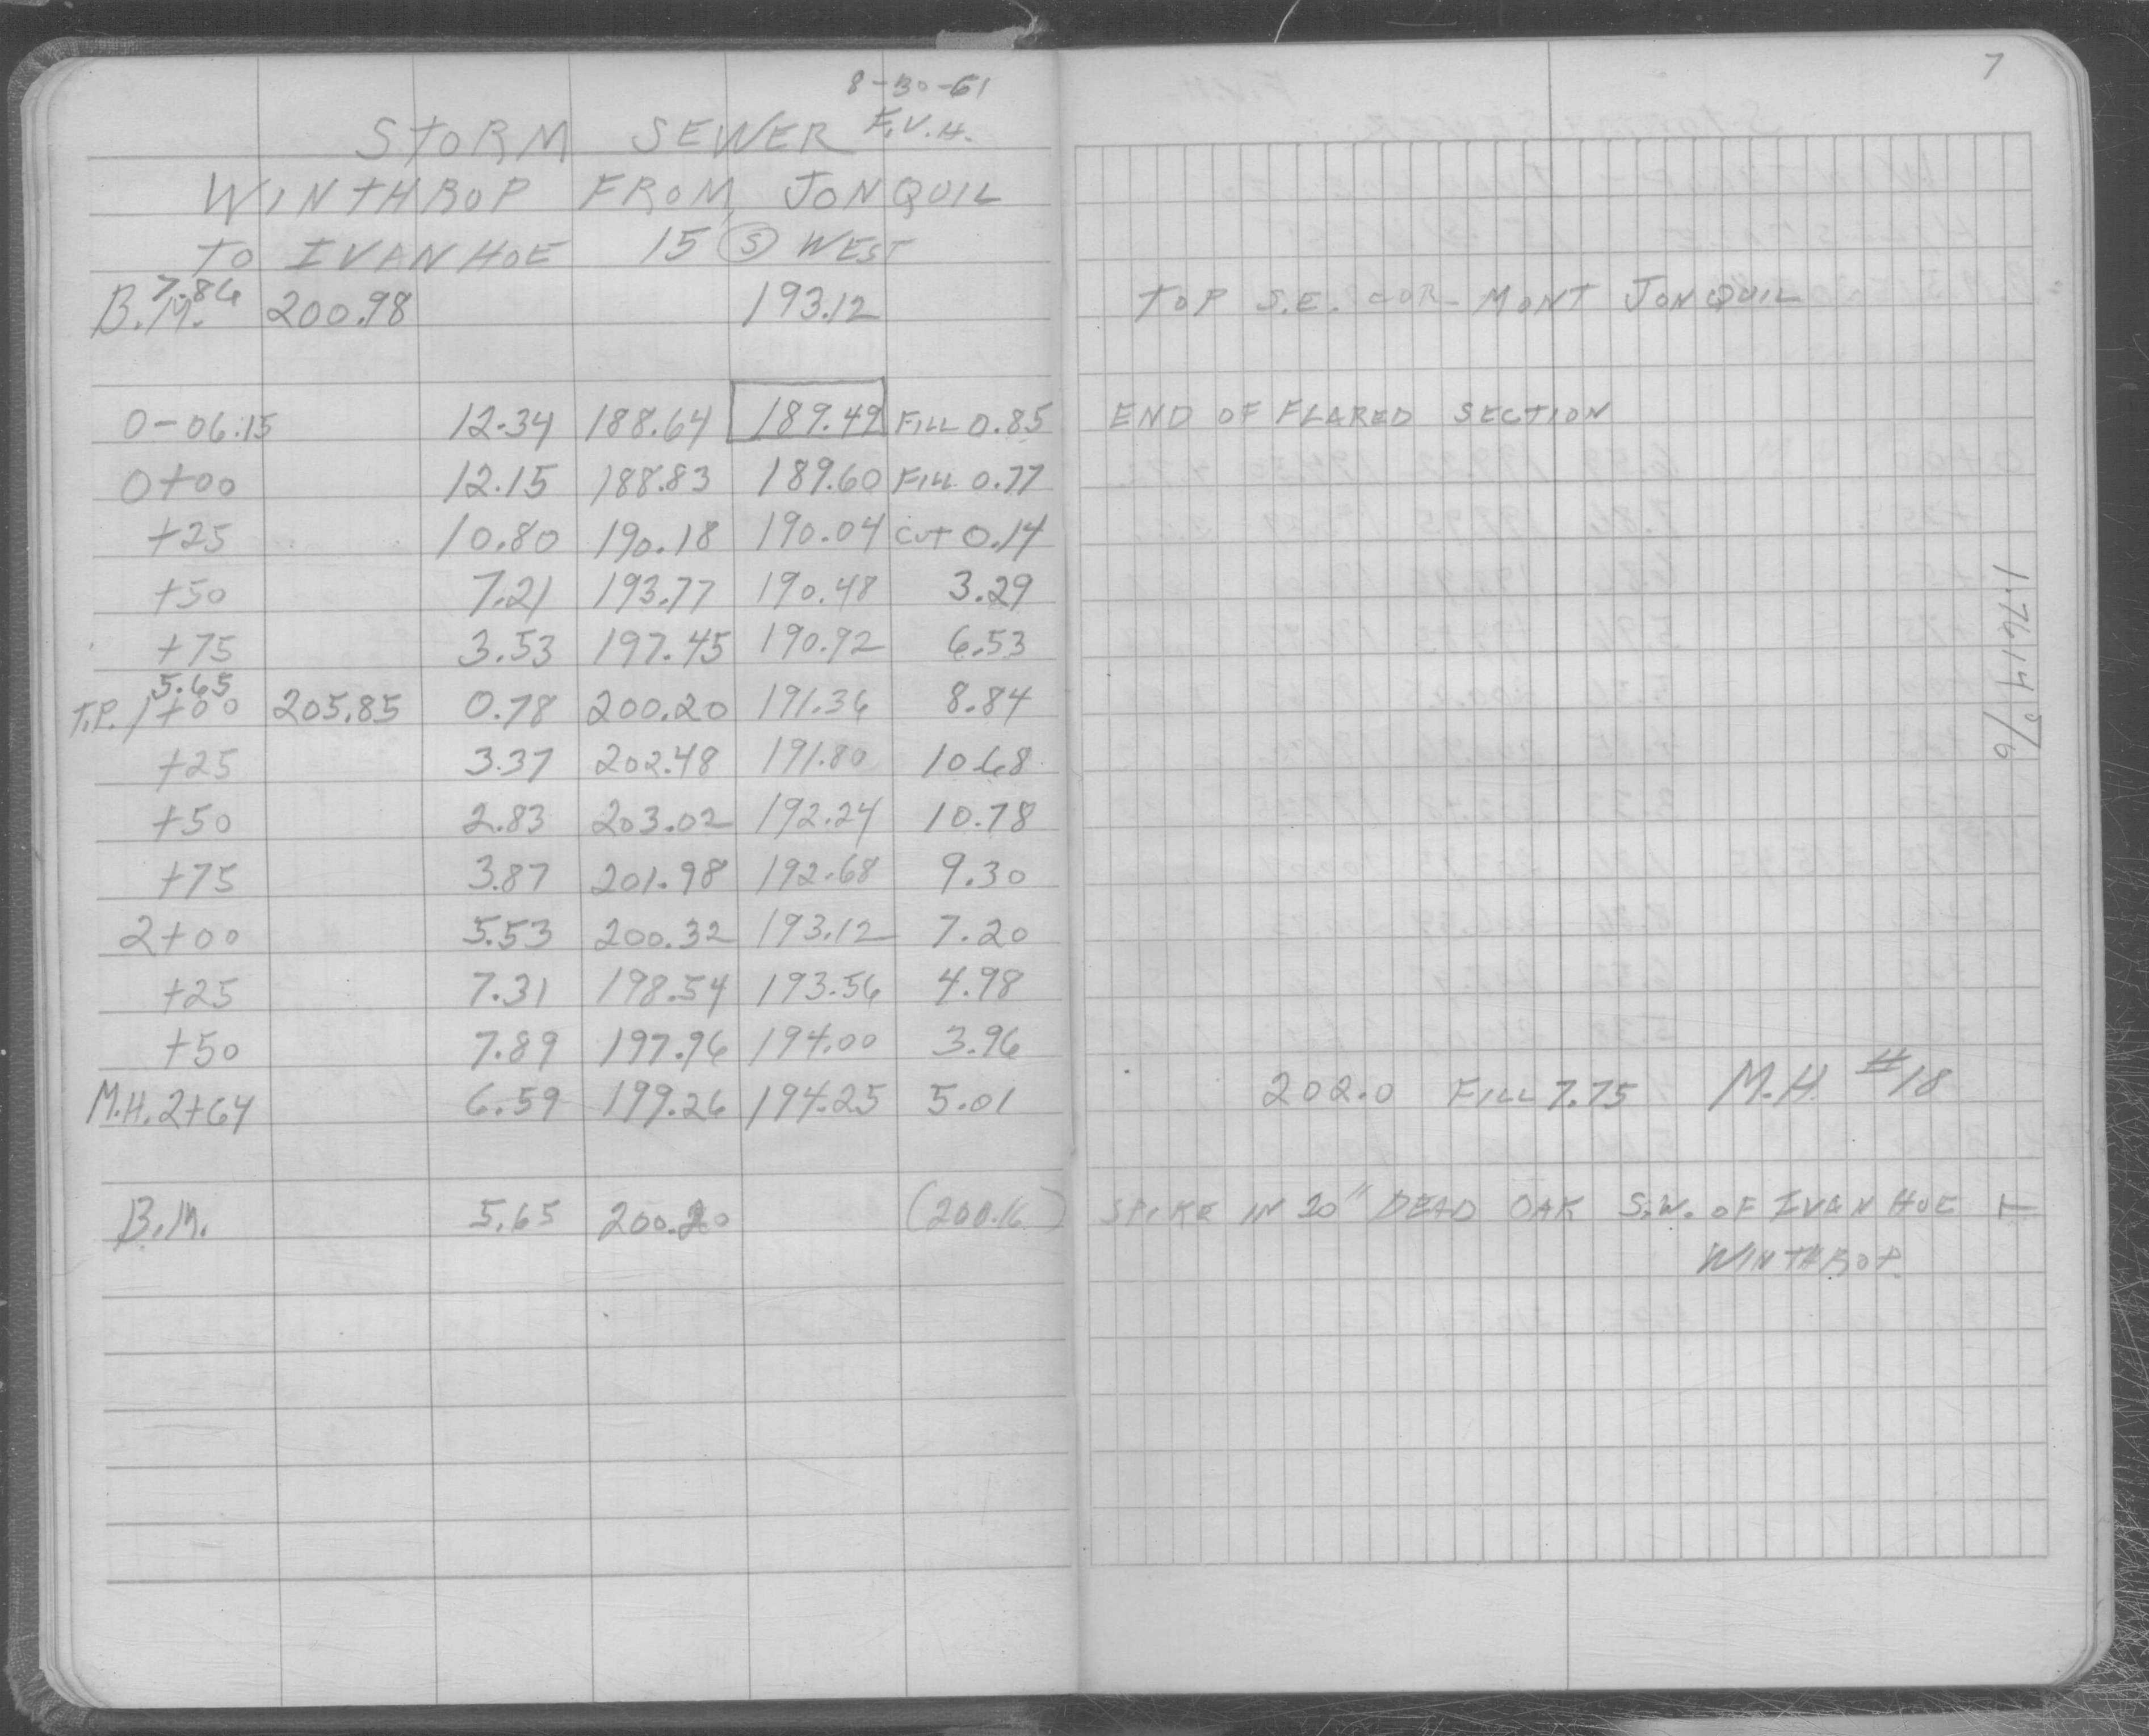 8-30-61
STORM SEWER F.V.H.
WINTHROP FROM JONQUIL
TO IVANHOE 15 (S) WEST
7.86
B.M. 200.98 193.12
0-06.15 12.34 188.64 189.49 FILL 0.85
0+00 12.15 188.83 189.60 FILL 0.77
+25 10.80 190.18 190.04 CUT 0.14
+50 7.21 193.77 190.48 3.29
+75 3.53 197.45 190.92 6.53
5.65
T.P. 1+00 205.85 0.78 200.20 191.36 8.84
+25 3.37 202.48 191.80 10.68
+50 2.83 203.02 192.24 10.78
+75 3.87 201.98 192.68 9.30
2+00 5.53 200.32 193.12 7.20
+25 7.31 198.54 193.56 4.98
+50 7.89 197.96 194.00 3.96
M.H. 2+64 6.59 199.26 194.25 5.01
B.M. 5.65 200.20 (200.16)
7
TOP S.E. COR- MONT JONQUIL
END OF FLARED SECTION
1.7614%
202.0 FILL 7.75 M.H. #18
SPIKE IN 20" DEAD OAK S.W. OF IVAN HOE
WINTHROP